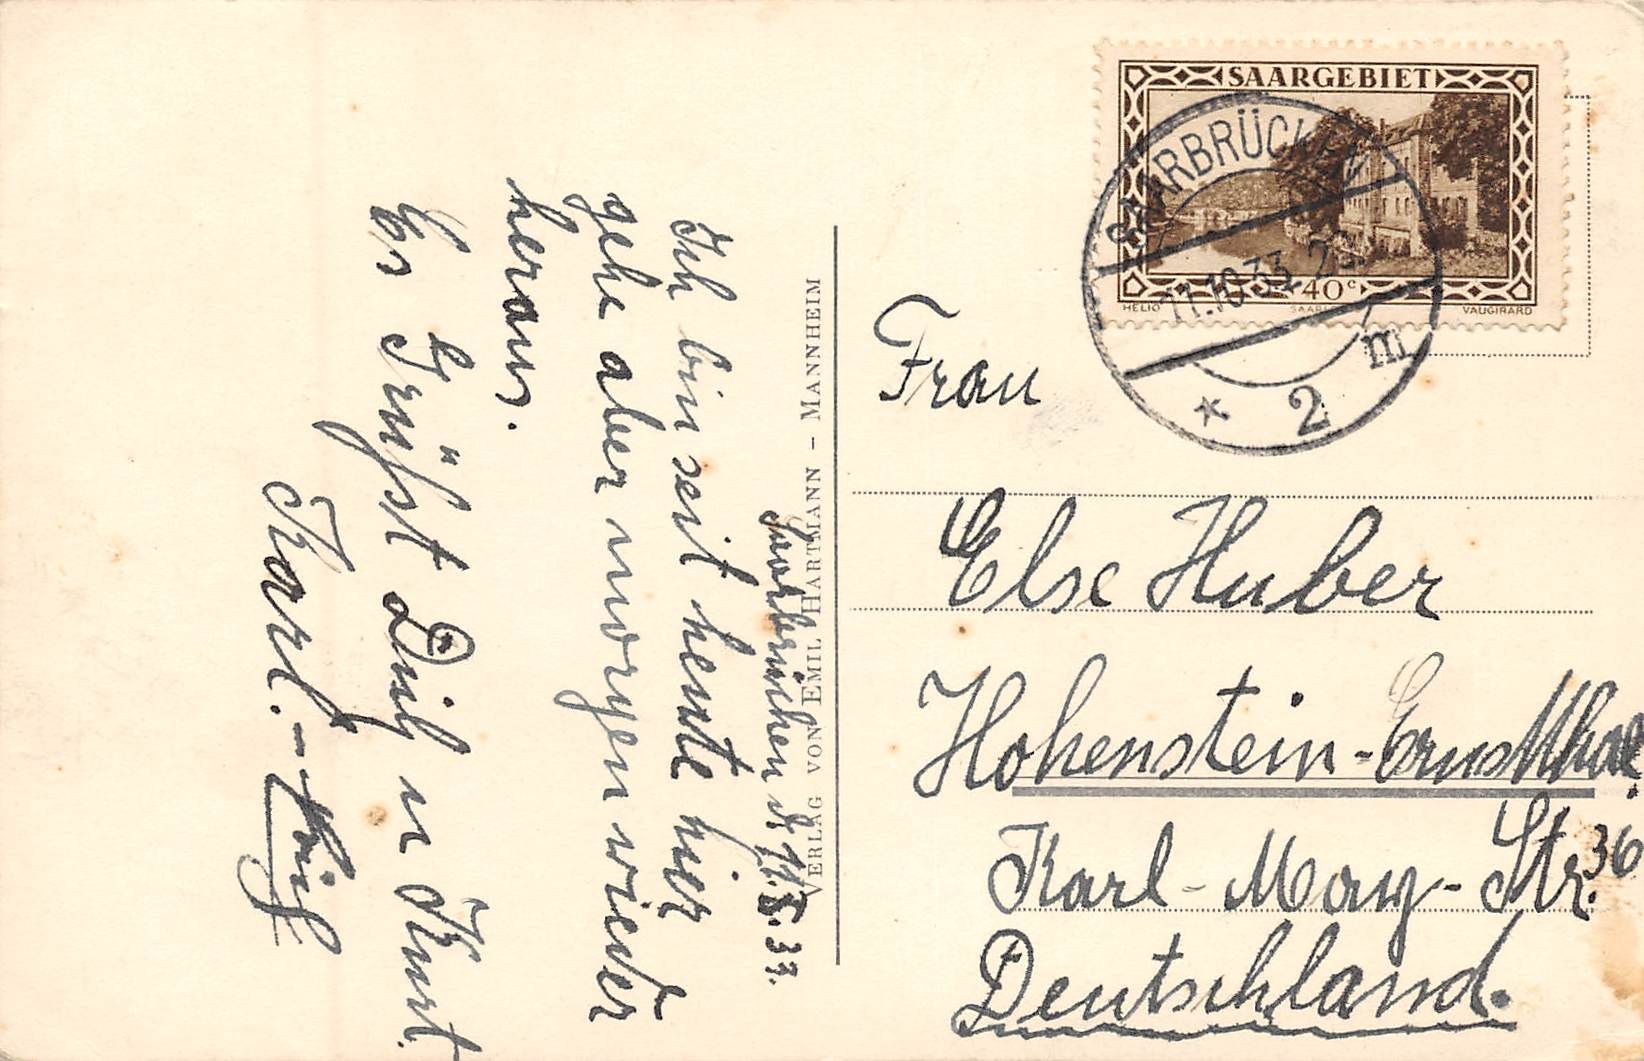 Saarbrücken d. 11.X.33.
Ich bin seit heute hier
gehe aber morgen wieder
heraus.
Es Grüßt Dich u Kurt.
Karl.
VERLAG VON EMIL HARTMANN - MANNHEIM
SAARGEBIET
40c
HELIO
VAUGIRARD
SAARBRÜCKEN
11.10.33
* 2 m
Frau
Else Huber
Hohenstein-Ernstthal.
Karl-May-Str. 36
Deutschland.